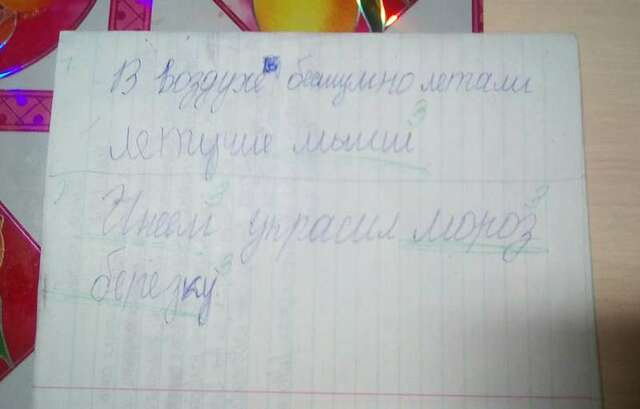 В воздухе бесшумно летали
летучие мыши 3
Инеем 3 украсил мороз 3
березку 3